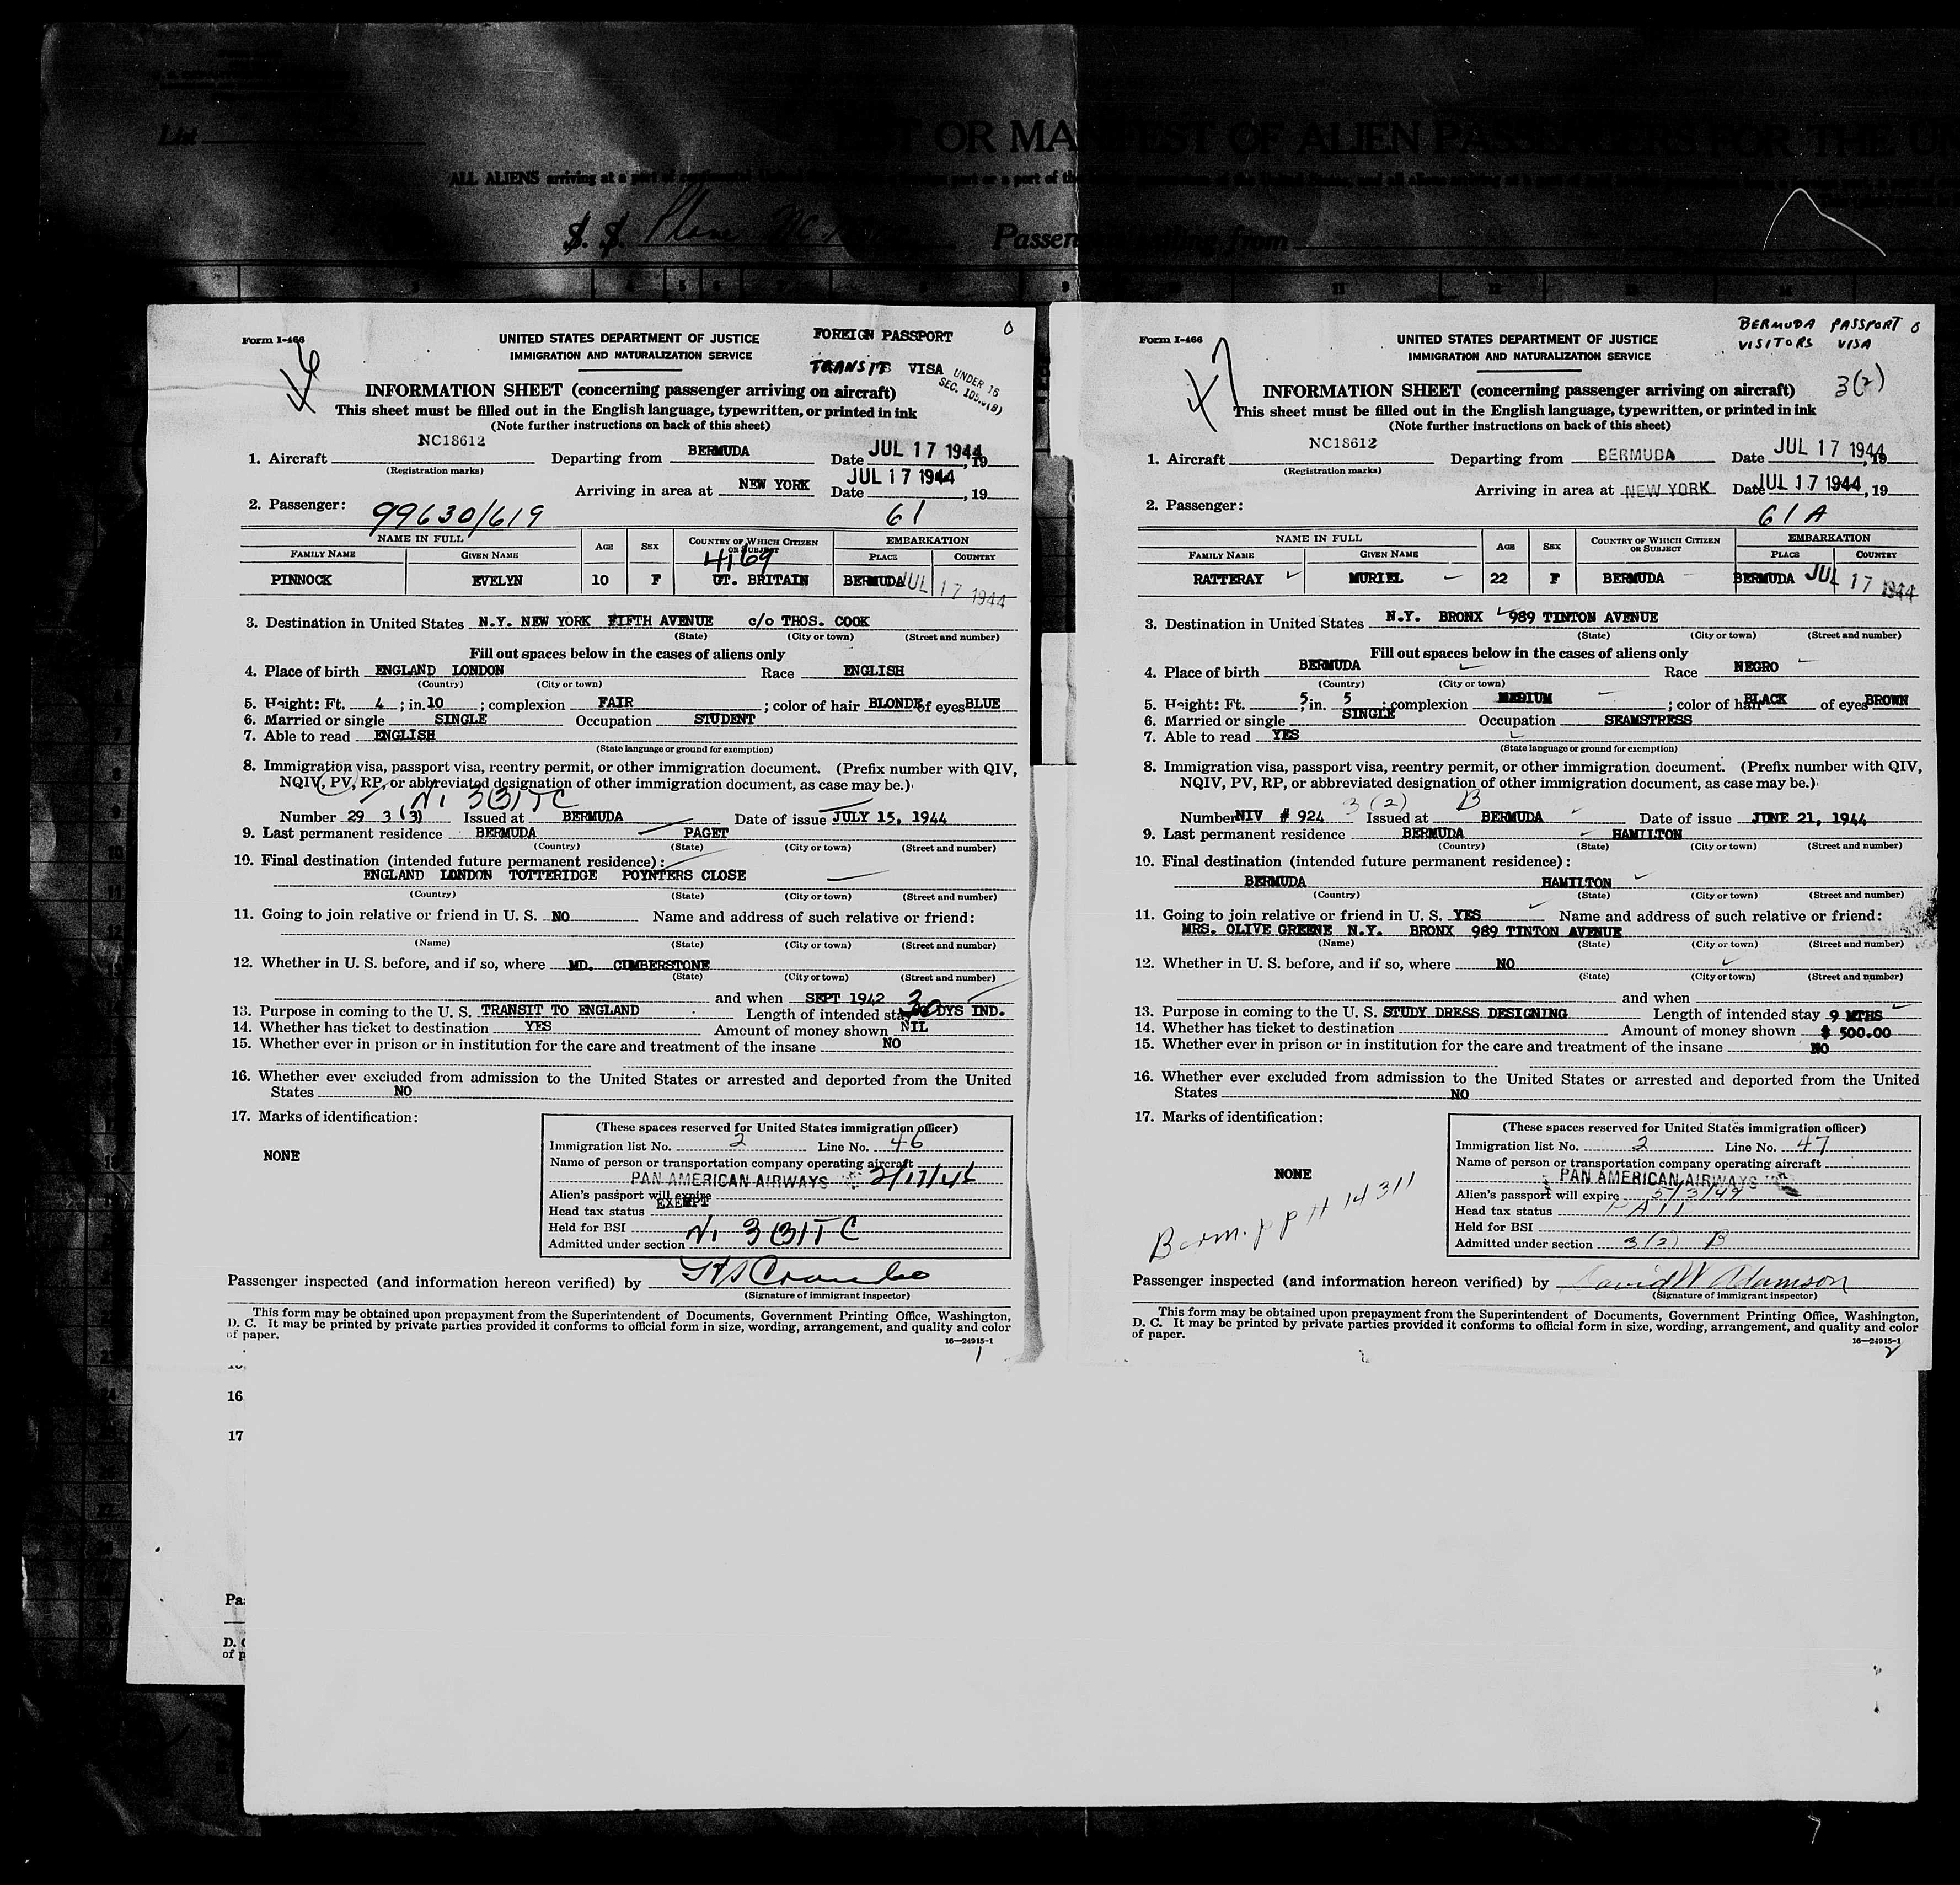 List
LIST OR MANIFEST OF ALIEN PASSENGERS FOR THE
ALL ALIENS arriving at a port of continental United States
S. S. Plane NC- Passengers sailing from
Form I-466
46
UNITED STATES DEPARTMENT OF JUSTICE
IMMIGRATION AND NATURALIZATION SERVICE
FOREIGN PASSPORT
TRANSIT VISA
UNDER 16
SEC. 105.3(B)
INFORMATION SHEET (concerning passenger arriving on aircraft)
This sheet must be filled out in the English language, typewritten, or printed in ink
(Note further instructions on back of this sheet)
1. Aircraft NC18612 Departing from BERMUDA Date JUL 17 1944, 19
(Registration marks)
Arriving in area at NEW YORK Date JUL 17 1944, 19
2. Passenger: 99630/619 61
NAME IN FULL AGE SEX COUNTRY OF WHICH CITIZEN OR SUBJECT EMBARKATION
FAMILY NAME GIVEN NAME 4169 PLACE COUNTRY
PINNOCK EVELYN 10 F GT. BRITAIN BERMUDA JUL 17 1944
3. Destination in United States N.Y. NEW YORK FIFTH AVENUE c/o THOS. COOK
(State) (City or town) (Street and number)
Fill out spaces below in the cases of aliens only
4. Place of birth ENGLAND LONDON Race ENGLISH
(Country) (City or town)
5. Height: Ft. 4 ; in. 10 ; complexion FAIR ; color of hair BLONDE of eyes BLUE
6. Married or single SINGLE Occupation STUDENT
7. Able to read ENGLISH
(State language or ground for exemption)
8. Immigration visa, passport visa, reentry permit, or other immigration document. (Prefix number with QIV,
NQIV, PV, RP, or abbreviated designation of other immigration document, as case may be.)
Number 29 3 (3) Issued at BERMUDA Date of issue JULY 15, 1944
9. Last permanent residence BERMUDA PAGET
(Country) (State) (City or town) (Street and number)
10. Final destination (intended future permanent residence):
ENGLAND LONDON TOTTERIDGE POYNTERS CLOSE
(Country) (State) (City or town) (Street and number)
11. Going to join relative or friend in U. S. NO Name and address of such relative or friend:
(Name) (State) (City or town) (Street and number)
12. Whether in U. S. before, and if so, where MD. CUMBERSTONE
(State) (City or town) (Street and number)
and when SEPT 1942
13. Purpose in coming to the U. S. TRANSIT TO ENGLAND Length of intended stay 30 DYS IND.
14. Whether has ticket to destination YES Amount of money shown NIL
15. Whether ever in prison or in institution for the care and treatment of the insane NO
16. Whether ever excluded from admission to the United States or arrested and deported from the United
States NO
17. Marks of identification:
NONE
(These spaces reserved for United States immigration officer)
Immigration list No. 2 Line No. 46
Name of person or transportation company operating aircraft
PAN AMERICAN AIRWAYS 2/17/46
Alien's passport will expire
Head tax status EXEMPT
Held for BSI
Admitted under section
Passenger inspected (and information hereon verified) by
(Signature of immigrant inspector)
This form may be obtained upon prepayment from the Superintendent of Documents, Government Printing Office, Washington,
D. C. It may be printed by private parties provided it conforms to official form in size, wording, arrangement, and quality and color
of paper.
16—24915-1
1
Form I-466
47
UNITED STATES DEPARTMENT OF JUSTICE
IMMIGRATION AND NATURALIZATION SERVICE
BERMUDA PASSPORT
VISITORS VISA
3(2)
INFORMATION SHEET (concerning passenger arriving on aircraft)
This sheet must be filled out in the English language, typewritten, or printed in ink
(Note further instructions on back of this sheet)
1. Aircraft NC18612 Departing from BERMUDA Date JUL 17 1944, 19
(Registration marks)
Arriving in area at NEW YORK Date JUL 17 1944, 19
2. Passenger: 61A
NAME IN FULL AGE SEX COUNTRY OF WHICH CITIZEN OR SUBJECT EMBARKATION
FAMILY NAME GIVEN NAME PLACE COUNTRY
RATTERAY MURIEL 22 F BERMUDA BERMUDA JUL 17 1944
3. Destination in United States N.Y. BRONX 989 TINTON AVENUE
(State) (City or town) (Street and number)
Fill out spaces below in the cases of aliens only
4. Place of birth BERMUDA Race NEGRO
(Country) (City or town)
5. Height: Ft. 5 ; in. 5 ; complexion MEDIUM ; color of hair BLACK of eyes BROWN
6. Married or single SINGLE Occupation SEAMSTRESS
7. Able to read YES
(State language or ground for exemption)
8. Immigration visa, passport visa, reentry permit, or other immigration document. (Prefix number with QIV,
NQIV, PV, RP, or abbreviated designation of other immigration document, as case may be.)
3 (2) B
Number NIV # 924 Issued at BERMUDA Date of issue JUNE 21, 1944
9. Last permanent residence BERMUDA HAMILTON
(Country) (State) (City or town) (Street and number)
10. Final destination (intended future permanent residence):
BERMUDA HAMILTON
(Country) (State) (City or town) (Street and number)
11. Going to join relative or friend in U. S. YES Name and address of such relative or friend:
MRS. OLIVE GREENE N.Y. BRONX 989 TINTON AVENUE
(Name) (State) (City or town) (Street and number)
12. Whether in U. S. before, and if so, where NO
(State) (City or town) (Street and number)
and when
13. Purpose in coming to the U. S. STUDY DRESS DESIGNING Length of intended stay 9 MTHS
14. Whether has ticket to destination Amount of money shown $ 500.00
15. Whether ever in prison or in institution for the care and treatment of the insane NO
16. Whether ever excluded from admission to the United States or arrested and deported from the United
States NO
17. Marks of identification:
NONE
Berm. PP # 14311
(These spaces reserved for United States immigration officer)
Immigration list No. 2 Line No. 47
Name of person or transportation company operating aircraft
PAN AMERICAN AIRWAYS
Alien's passport will expire 5/3/49
Head tax status
Held for BSI
Admitted under section 3(2) B
Passenger inspected (and information hereon verified) by David W Adamson
(Signature of immigrant inspector)
This form may be obtained upon prepayment from the Superintendent of Documents, Government Printing Office, Washington,
D. C. It may be printed by private parties provided it conforms to official form in size, wording, arrangement, and quality and color
of paper.
16—24915-1
2
16
17
Pa
D. C
of p